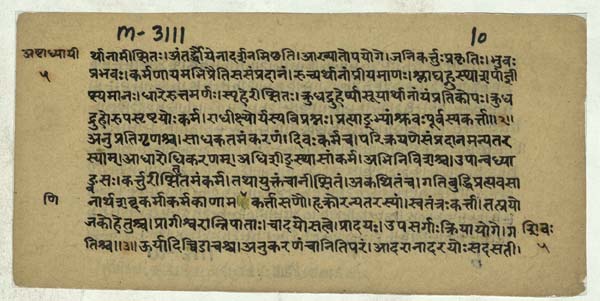 m-3111
10
अष्टाध्यायी
५
र्थानामीप्सितः। अंतर्द्धौयेनादर्शनमिछति। आख्यातोपयोगे। जनिकर्त्तुःप्रकृतिः। भुवः
प्रभवः। कर्मणायमभिप्रैतिससंप्रदानं। रुच्यर्थानांप्रीयमाणः। श्लाघह्नुङ्स्थाशपांज्ञी
प्स्यमानः। धारेरुत्तमर्णः। स्पृहेरीप्सितः। क्रुधद्रुहेर्ष्यासूयार्थानांयंप्रतिकोपः। क्रुध
द्रुहोरुपसृष्टयोः कर्म। राधीक्ष्योर्यस्यविप्रश्नः। प्रत्याङ्भ्यांश्रुवःपूर्वस्यकर्त्ता॥२॥
अनुप्रतिगृणश्च। साधकतमंकरणं। दिवः कर्मच। परिक्रयणेसंप्रदानमन्यतर
स्याम्। आधारोधिकरणम्। अधिशीङ्स्थासांकर्म। अभिनिविशश्च। उपान्वध्या
ङ्वसः। कर्त्तुरीप्सिततमंकर्म। तथायुक्तंचानीप्सितं। अकथितंच। गतिबुद्धिप्रत्यवसा
नार्थशब्दकर्माकर्मकाणाम कर्त्तासणौ। हृक्रोरन्यतरस्यां। स्वतंत्रः कर्त्ता। तत्प्रयो
णि
जकोहेतुश्च। प्राग्रीश्वरान्निपाताः। चादयोसत्वे। प्रादयः। उपसर्गाः क्रियायोगे। ग
तिश्च॥३॥ ऊर्यादिच्विडाचश्च। अनुकरणंचानितिपरं। आदरानादरयोः सदसती।
शिवः
५